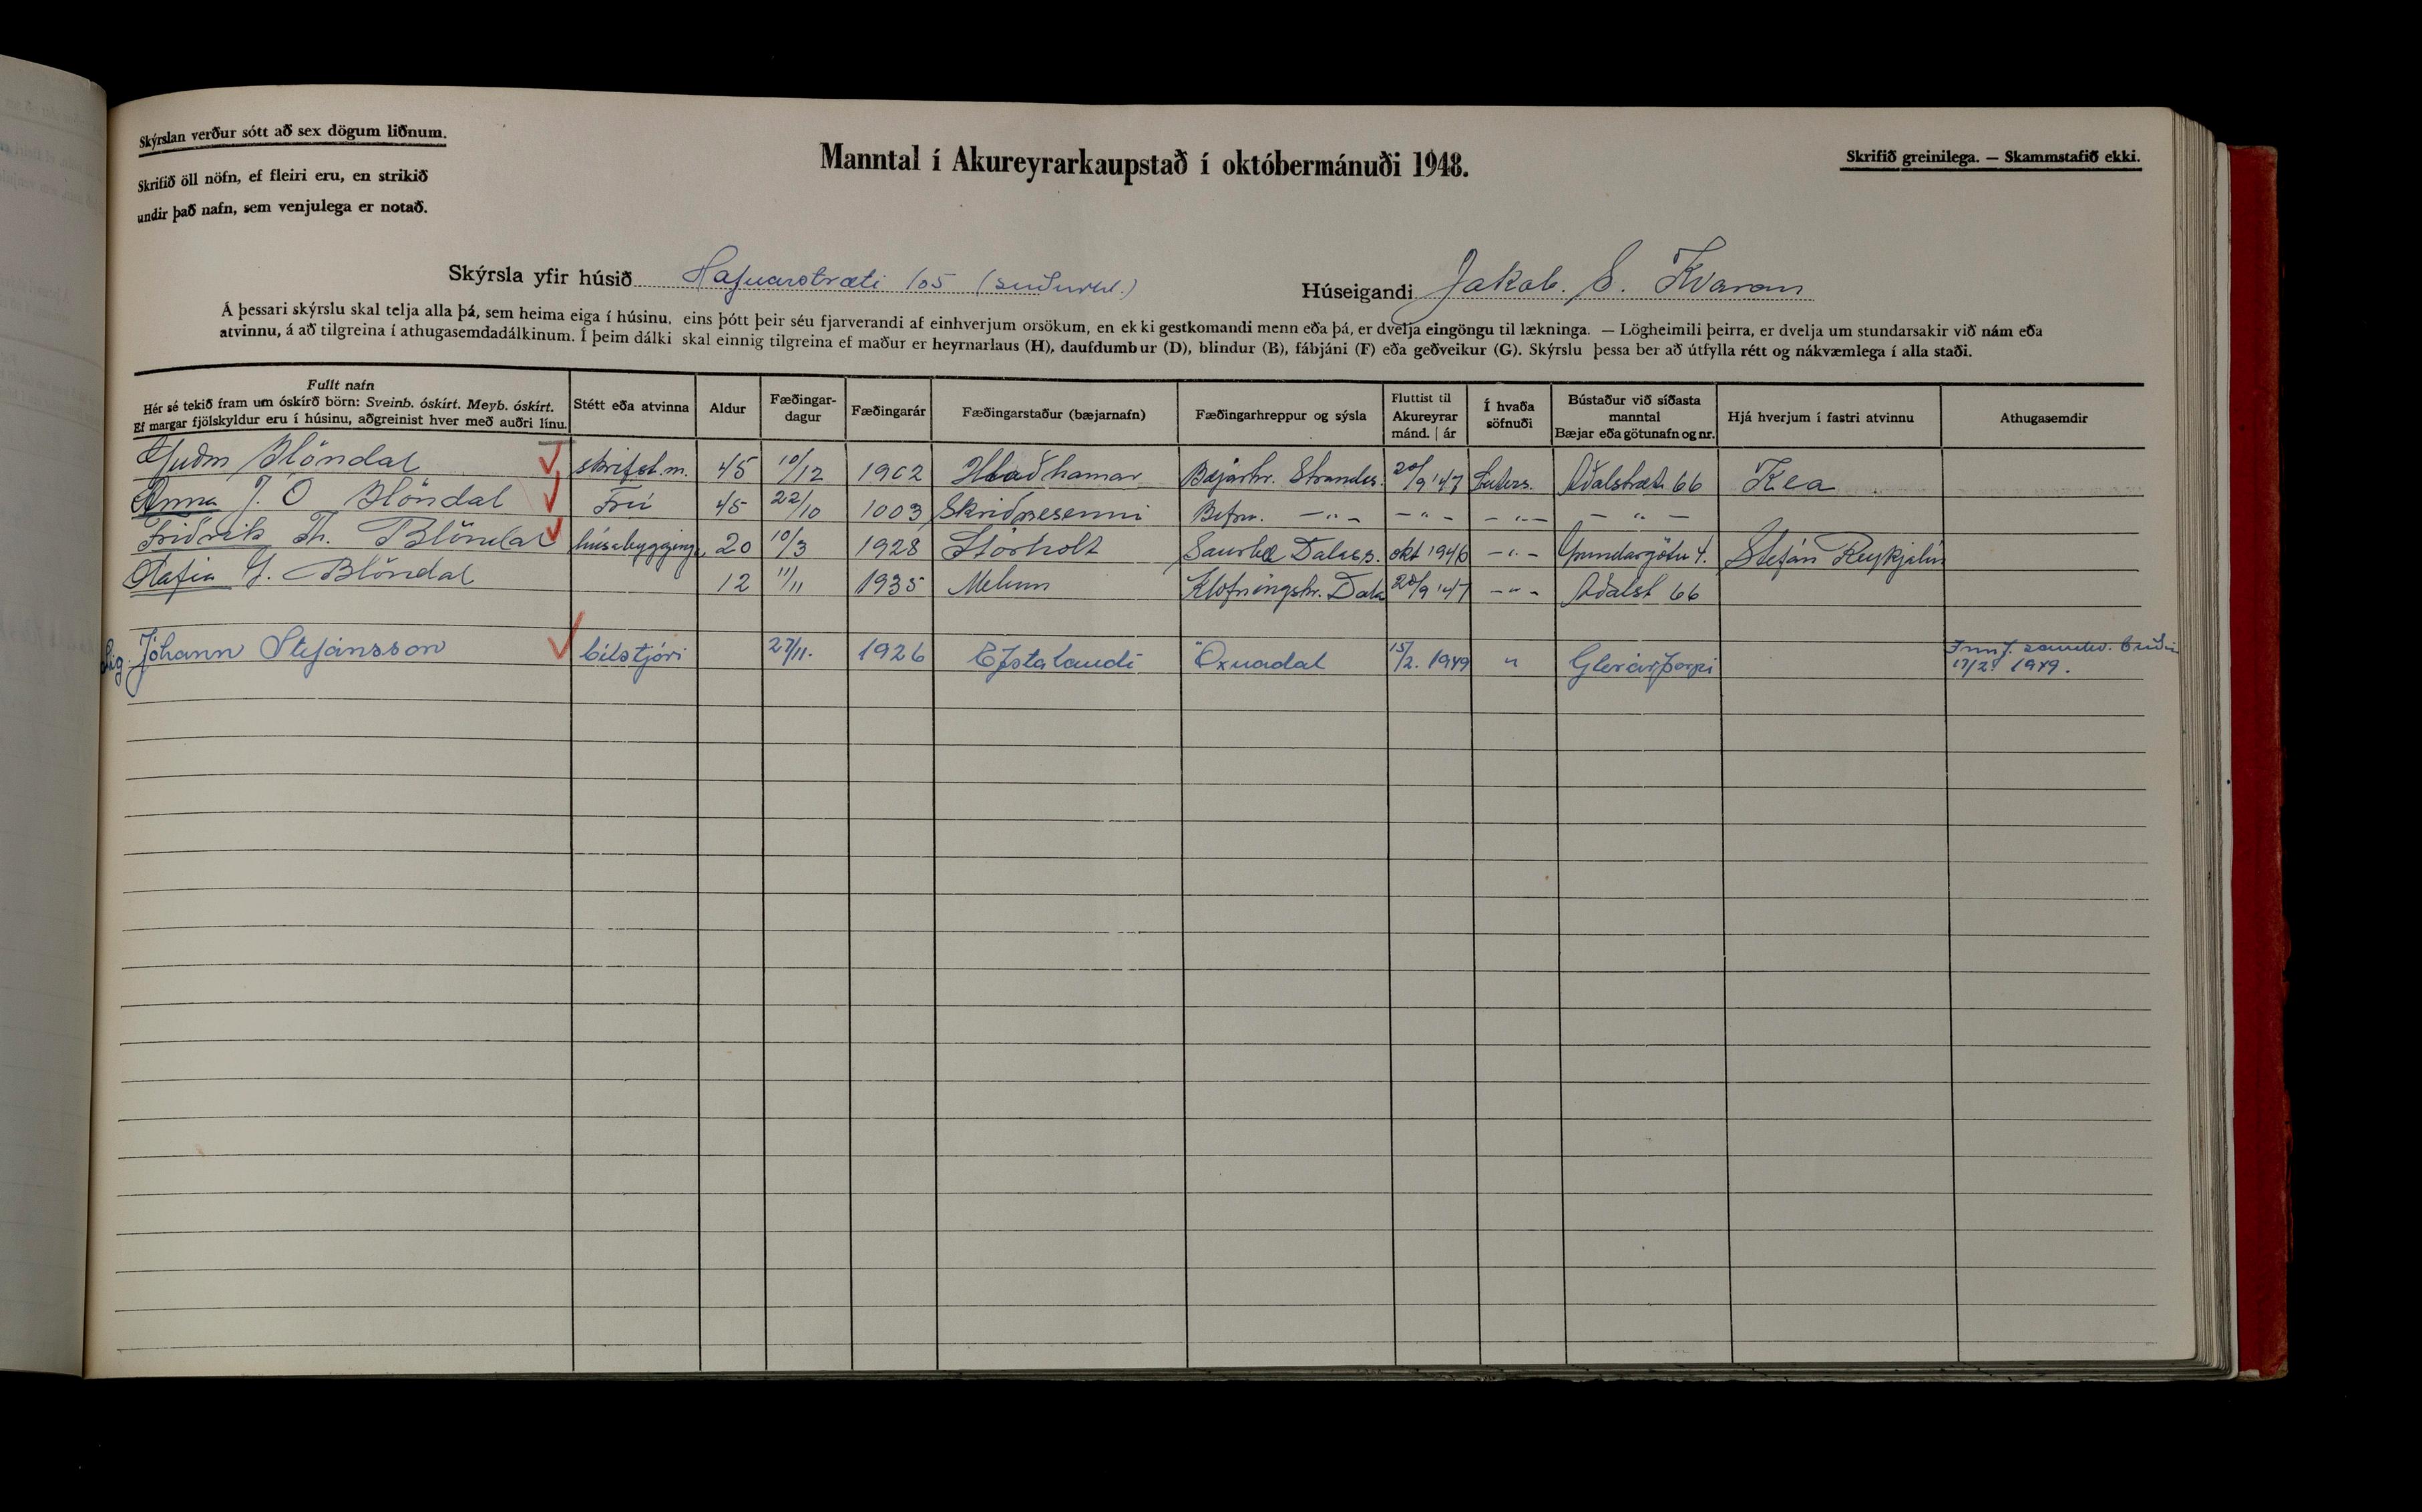 Skýrslan verður sótt að sex dögum liðnum.
Skrifið öll nöfn, ef fleiri eru, en strikið
undir það nafn, sem venjulega er notað.
Manntal í Akureyrarkaupstað í októbermánuði 1948.
Skrifið greinilega. — Skammstafið ekki.
Skýrsla yfir húsið Hafnarstræti 105 (suðurhl.)
Húseigandi Jakob. S. Kvaran
Á þessari skýrslu skal telja alla þá, sem heima eiga í húsinu, eins þótt þeir séu fjarverandi af einhverjum orsökum, en ekki gestkomandi menn eða þá, er dvelja eingöngu til lækninga. — Lögheimili þeirra, er dvelja um stundarsakir við nám eða
atvinnu, á að tilgreina í athugasemdadálkinum. Í þeim dálki skal einnig tilgreina ef maður er heyrnarlaus (H), daufdumbur (D), blindur (B), fábjáni (F) eða geðveikur (G). Skýrslu þessa ber að útfylla rétt og nákvæmlega í alla staði.
Fullt nafn
Hér sé tekið fram um óskírð börn: Sveinb. óskírt. Meyb. óskírt.
Ef margar fjölskyldur eru í húsinu, aðgreinist hver með auðri línu.
Stétt eða atvinna
Aldur
Fæðingar-
dagur
Fæðingarár
Fæðingarstaður (bæjarnafn)
Fæðingarhreppur og sýsla
Fluttist til
Akureyrar
mánd. | ár
Í hvaða
söfnuði
Bústaður við síðasta
manntal
Bæjar eða götunafn og nr.
Hjá hverjum í fastri atvinnu
Athugasemdir
Guðm Blöndal skrifst.m. 45 10/12 1902 Hlaðhamar Bæjarhr. Strandas. 20/9 '47 Luters. Aðalstræti 66 Kea
Anna J. O Blöndal Frú 45 22/10 1003 Skriðnesenni -"- -"- -"- -"-
Friðrik Th. Blöndal húsabygging 20 10/3 1928 Stórholt Saurbæ Dalas. okt 1946 -"- Grundargötu 4. Stefán Reykjalín
Olafia G. Blöndal 12 11/11 1935 Melum Klofningshr. Dala 20/9 '47 -"- Aðalst 66
Jóhann Stefánsson bílstjóri 27/11. 1926 Efstalandi Öxnadal 15/2. 1949 " Glerárþorpi
17/2. 1949.